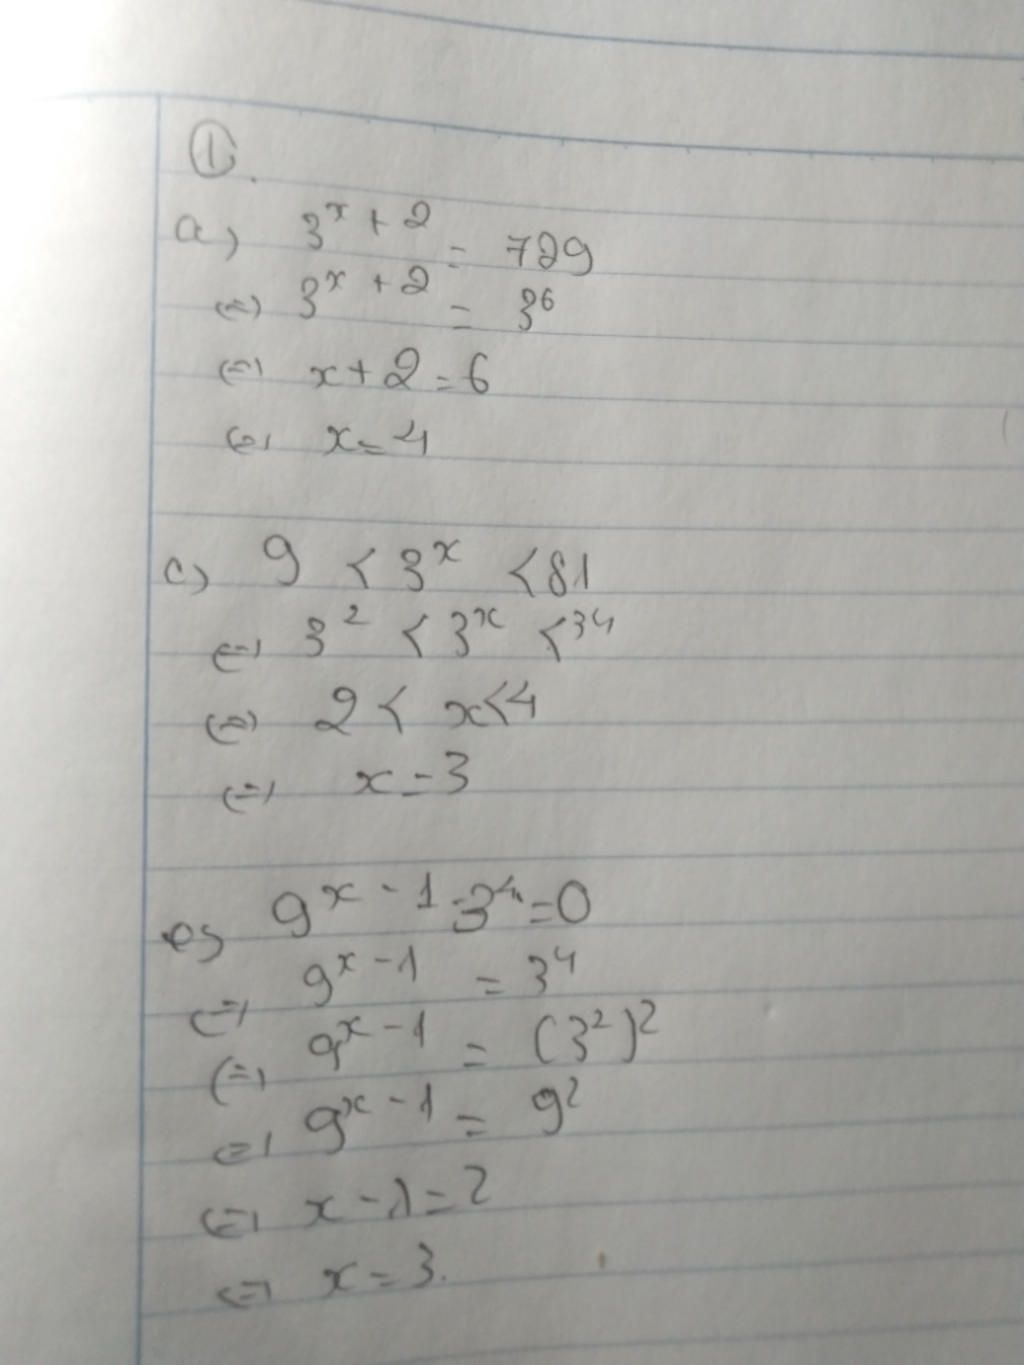 ①.
a) 3^{x+2} = 729
⇔ 3^{x+2} = 3^6
⇔ x+2=6
⇔ x=4
c) 9 < 3^x < 81
⇔ 3^2 < 3^x < 3^4
⇔ 2 < x < 4
⇔ x=3
e) 9^{x-1} - 3^4 = 0
⇔ 9^{x-1} = 3^4
⇔ 9^{x-1} = (3^2)^2
⇔ 9^{x-1} = 9^2
⇔ x-1=2
⇔ x=3.